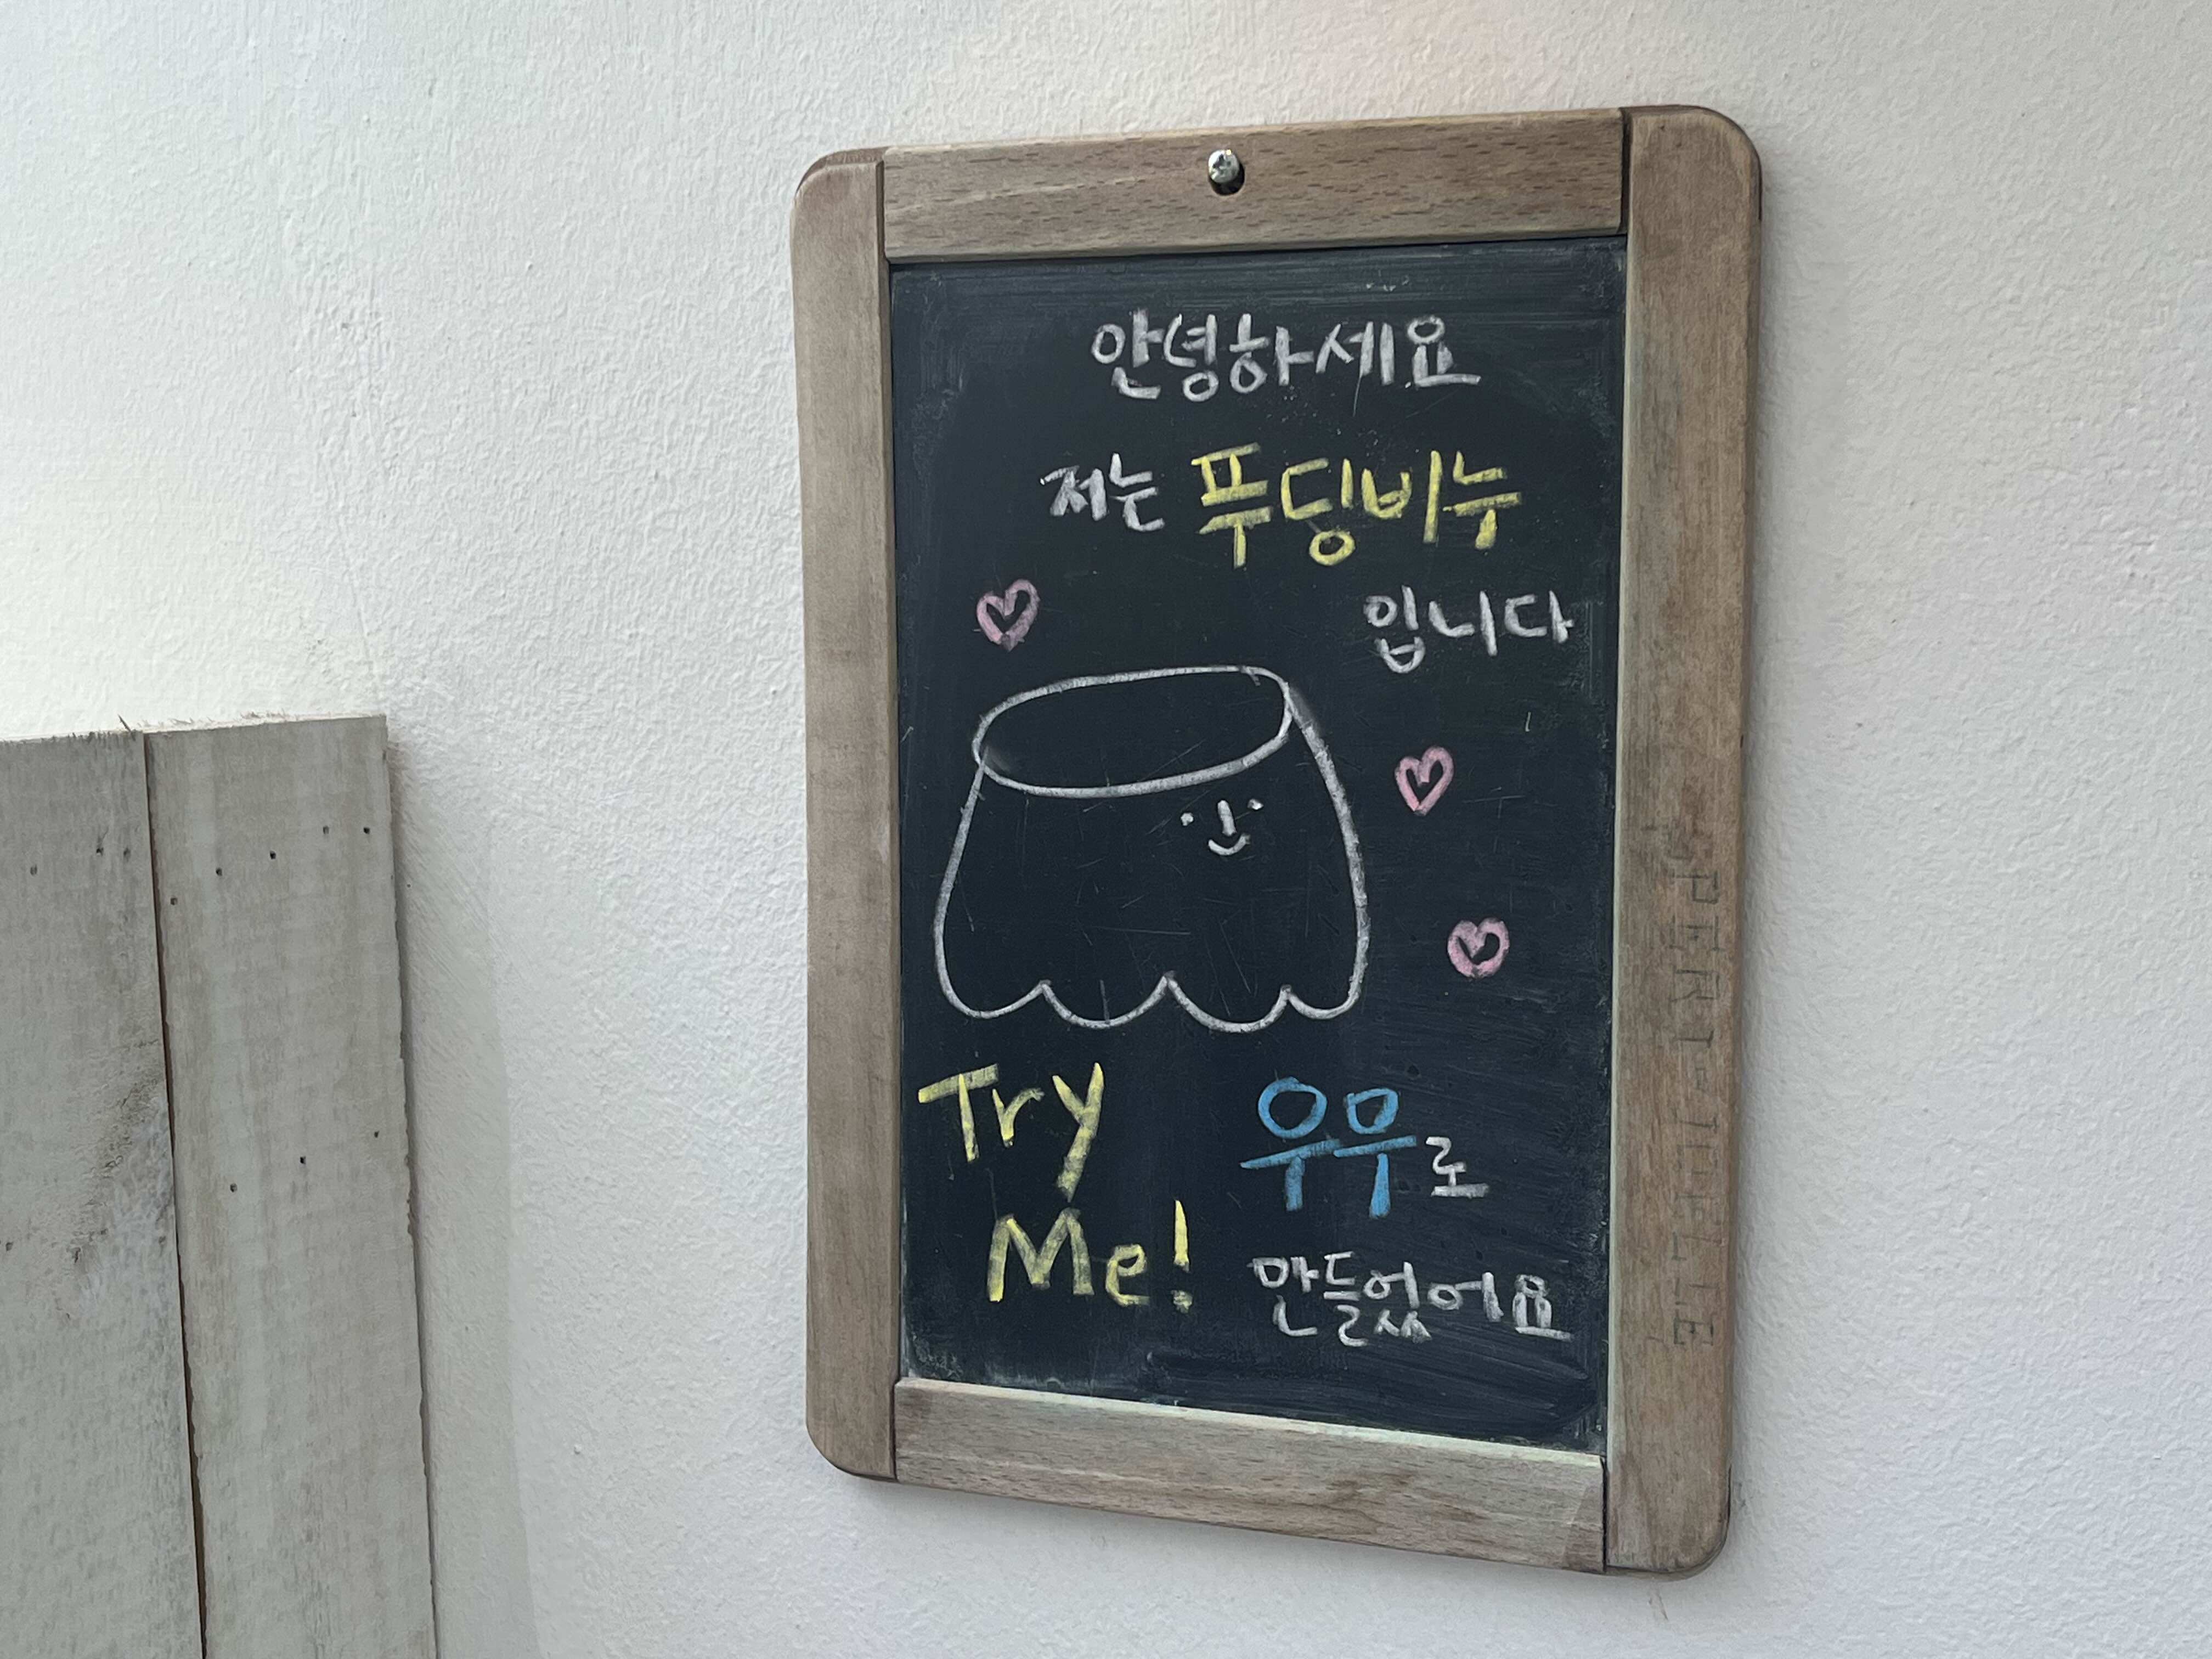 안녕하세요
저는 푸딩비누
입니다
Try
Me!
우유로
만들었어요